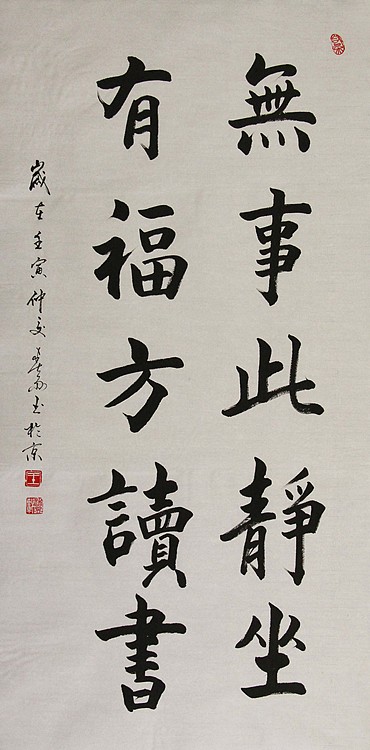 無事此靜坐
有福方讀書
歲在壬寅仲夏
書於京